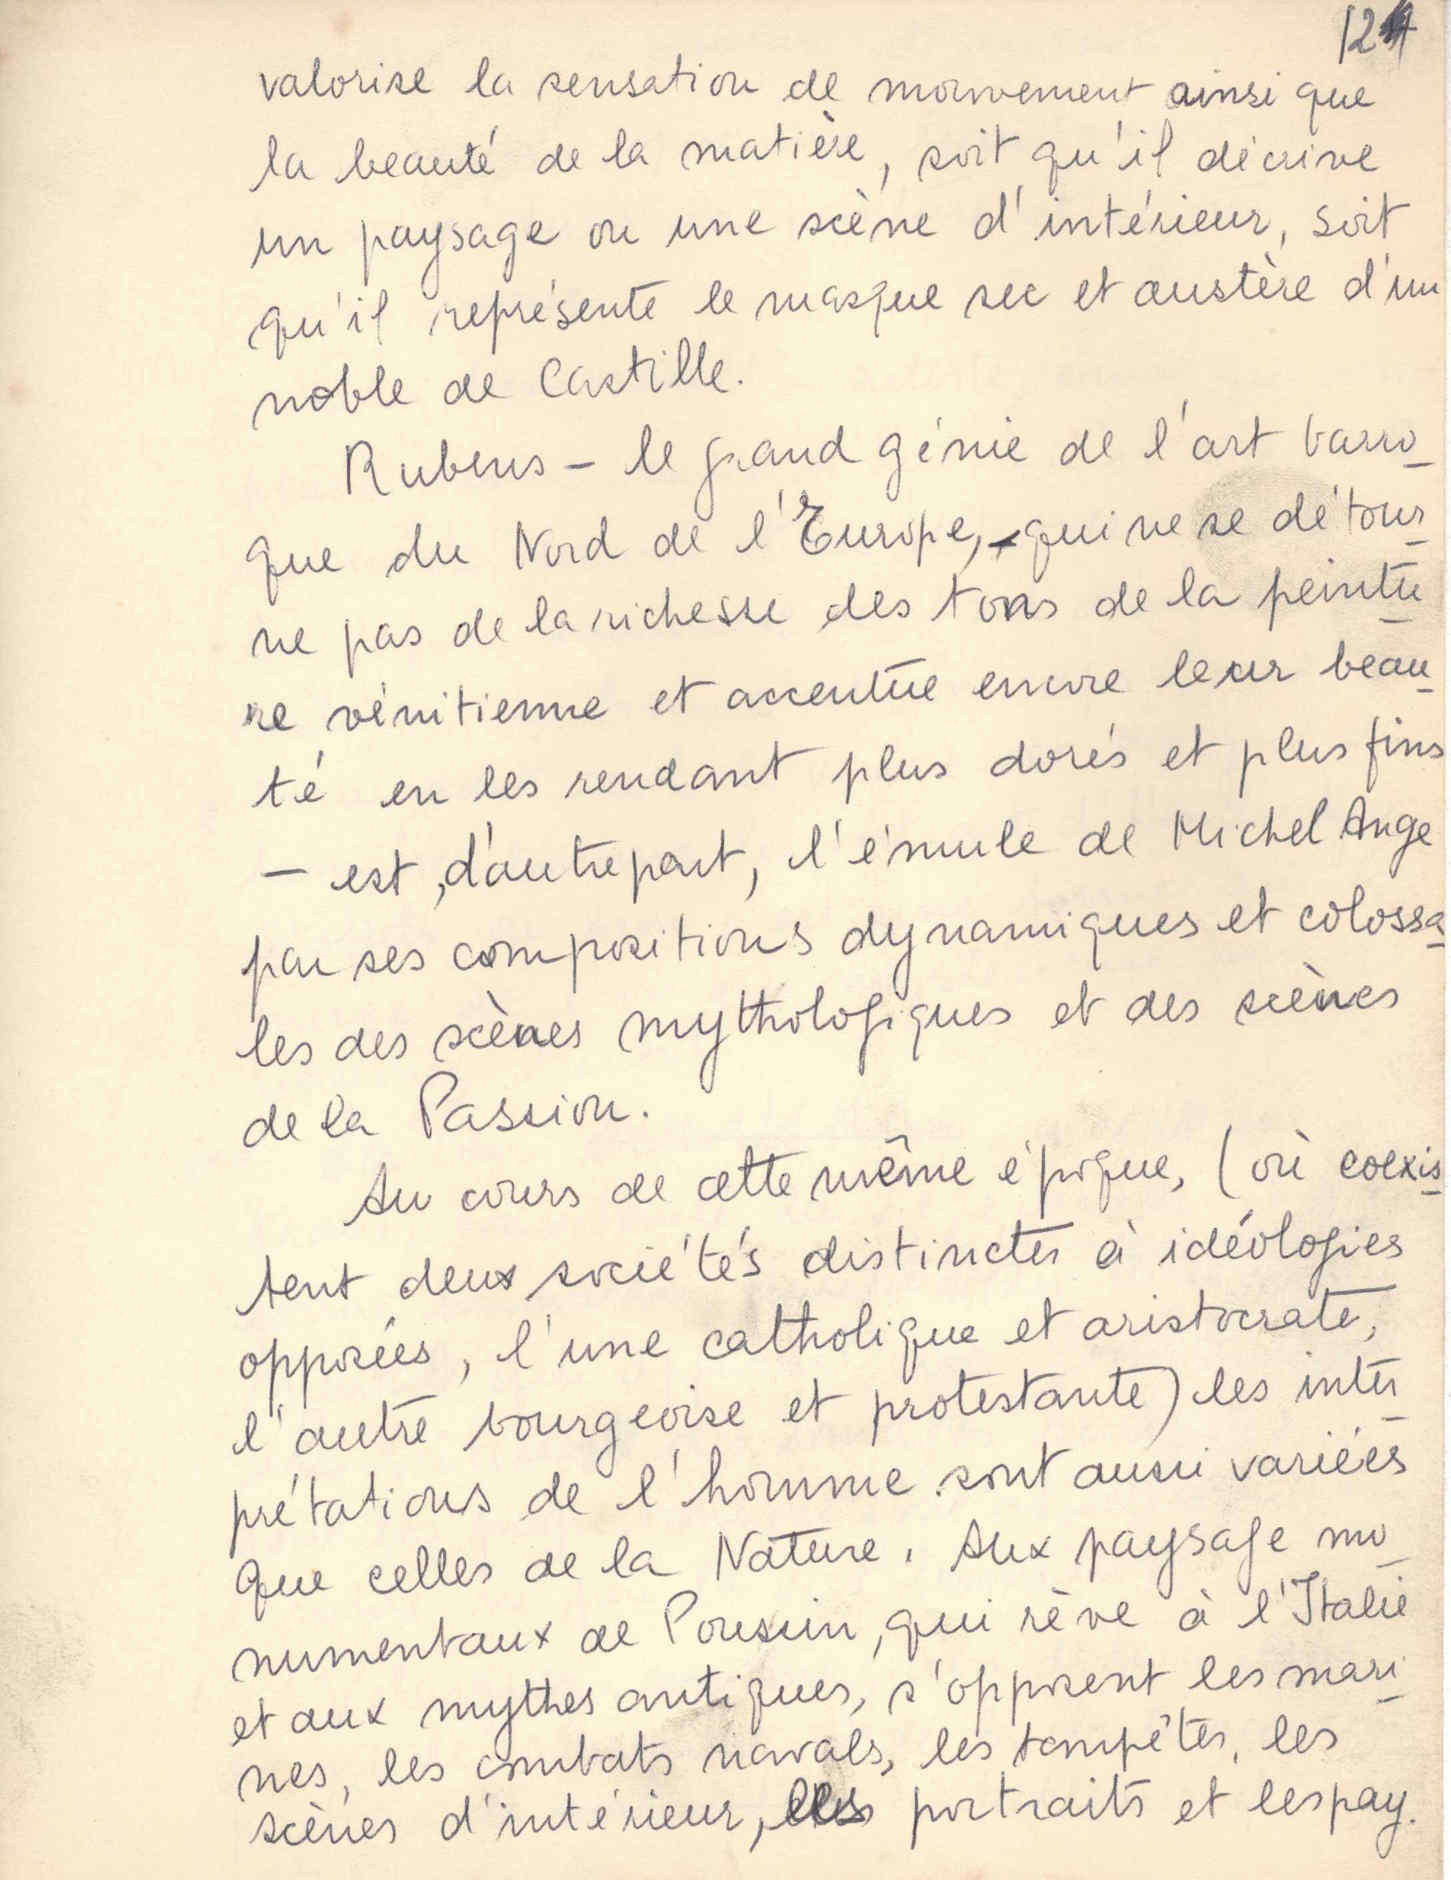 124
valorise la sensation de mouvement ainsi que
la beauté de la matière, soit qu'il décrive
un paysage ou une scène d'intérieur, soit
qu'il représente le masque sec et austère d'un
noble de Castille.
Rubens – le grand génie de l'art barro-
que du Nord de l'Europe, qui ne se détour-
ne pas de la richesse des tons de la peintu-
re vénitienne et accentue encore leur beau-
té en les rendant plus dorés et plus fins
– est, d'autre part, l'émule de Michel Ange
par ses compositions dynamiques et colossa-
les des scènes mythologiques et des scènes
de la Passion.
Au cours de cette même époque, (où coexis-
tent deux sociétés distinctes à idéologies
opposées, l'une catholique et aristocrate,
l'autre bourgeoise et protestante) les inter-
prétations de l'homme sont aussi variées
que celles de la Nature. Aux paysage mo-
numentaux de Poussin, qui rêve à l'Italie
et aux mythes antiques, s'opposent les mari-
nes, les combats navals, les tempêtes, les
scènes d'intérieur, les portraits et les pay-